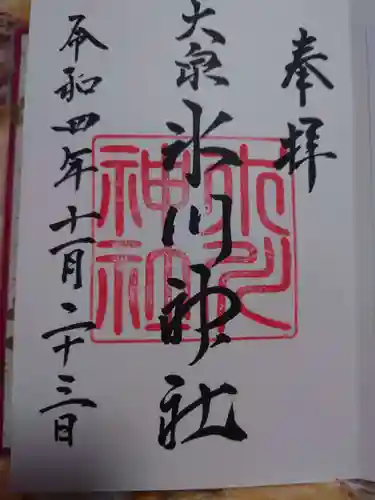 奉拝
大泉
氷川神社
令和四年十一月二十三日
氷川
神社